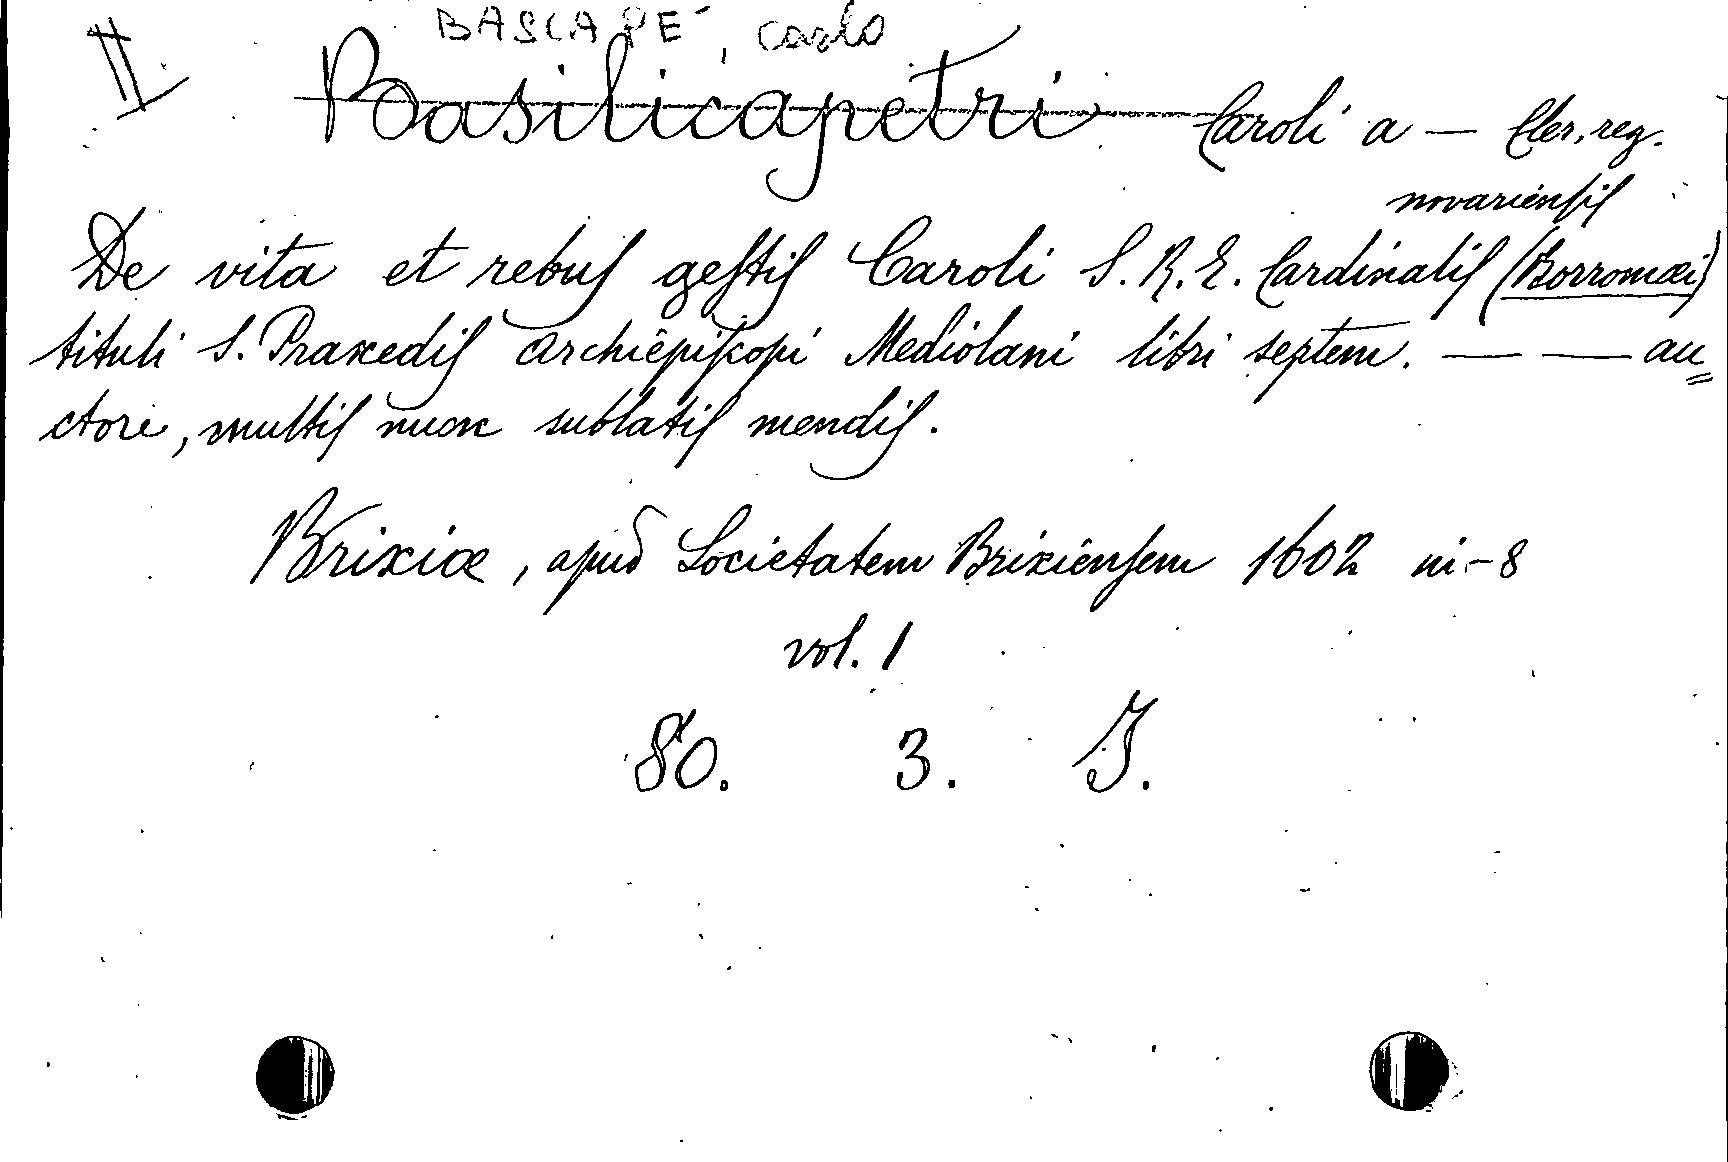 BASCAPE', Carlo
II Basilicapetri Caroli a — Cler. reg.
novariensis
De vita et rebus gestis Caroli S. R. E. Cardinalis (Borromæi)
tituli S. Praxedis archiepiscopi Mediolani libri septem. — — au=
ctore, multis nunc sublatis mendis.
Brixiæ, apud Societatem Brixiensem 1602 in-8
vol. 1
80. 3. I.